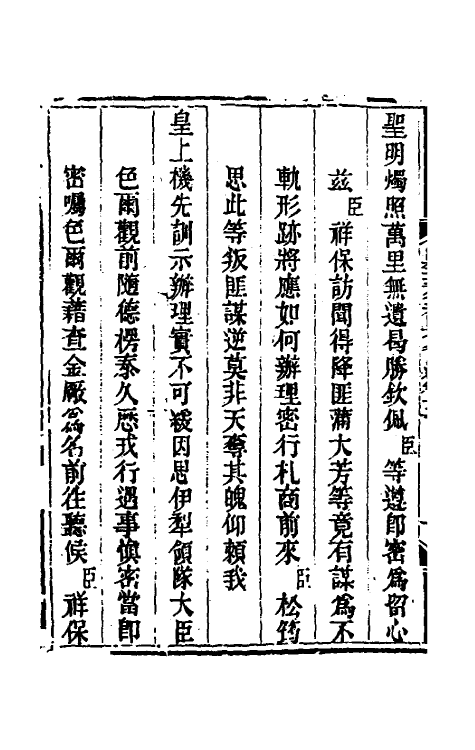 聖明燭照萬里無遺曷勝欽佩臣等遵即密爲留心
茲臣祥保訪聞得降匪蒲大芳等竟有謀爲不
軌形跡將應如何辦理密行札商前來臣松筠
思此等叛匪謀逆莫非天奪其魄仰賴我
皇上機先訓示辦理實不可緩因思伊犁領隊大臣
色爾觀前隨德楞泰久歷戎行遇事愼密當即
密囑色爾觀藉查金厰爲名前往聽候臣祥保